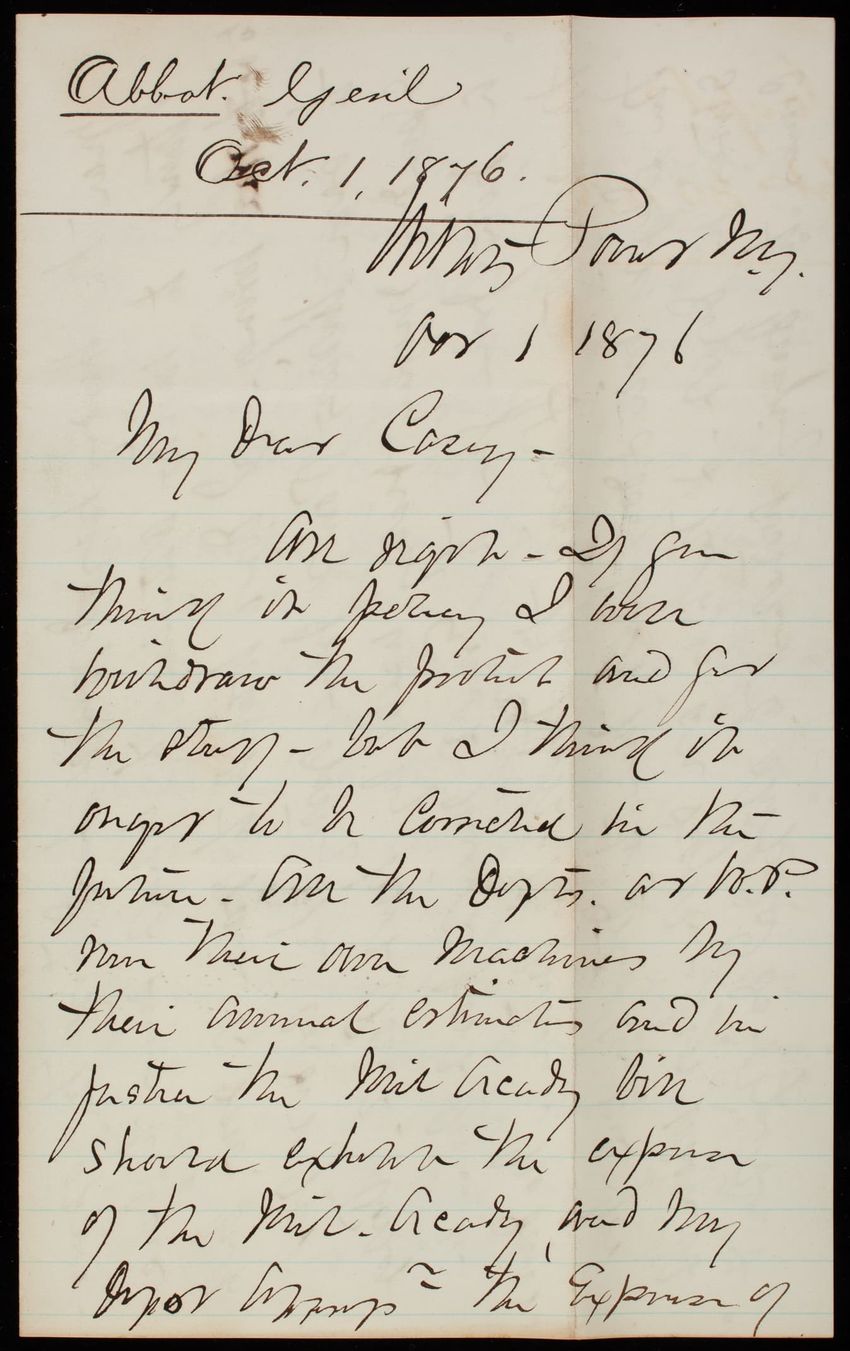 Abbot. Genl
Oct. 1, 1876.
Willets Point N.Y.
Oct 1 1876
My Dear Casey -
All right - If you
think it policy I will
withdraw the protest and get
the stuff - but I think it
ought to be corrected in the
future. All the Depts. at W.P.
run their own machines by
their annual estimates and in
justice the Mil Acady bill
should exhibit the expense
of the Mil. Acady, and my
Depot Approp~ the Expense of